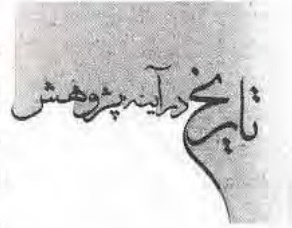 تاریخ در آینه پژوهش